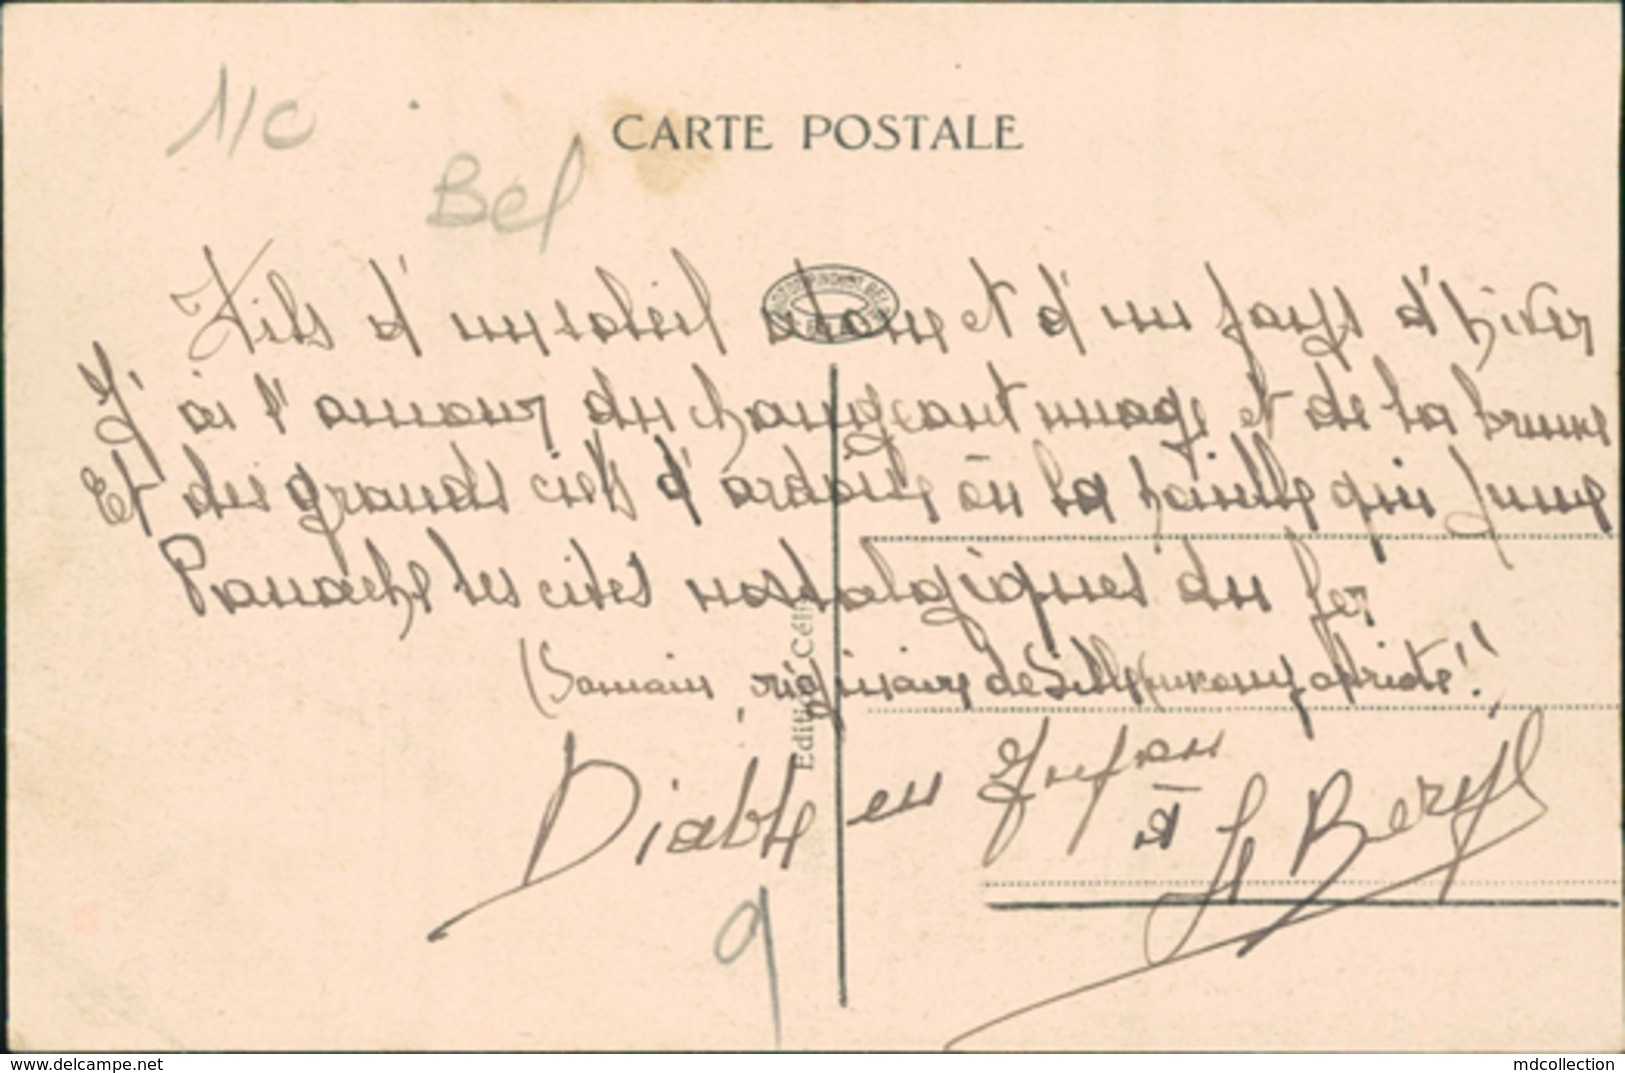 1/c
Bel
CARTE POSTALE
Fils d'un soleil et d'un pays d'hiver
J'ai l'amour du changeant nuage et de la brume
Et des grands ciels d'ardoise où la houille qui fume
Panache les cités nostalgiques du fer
(Samain originaire de Lille (un compatriote!!
Diable en
à
Edition Cél
9
www.delcampe.net
mdcollection